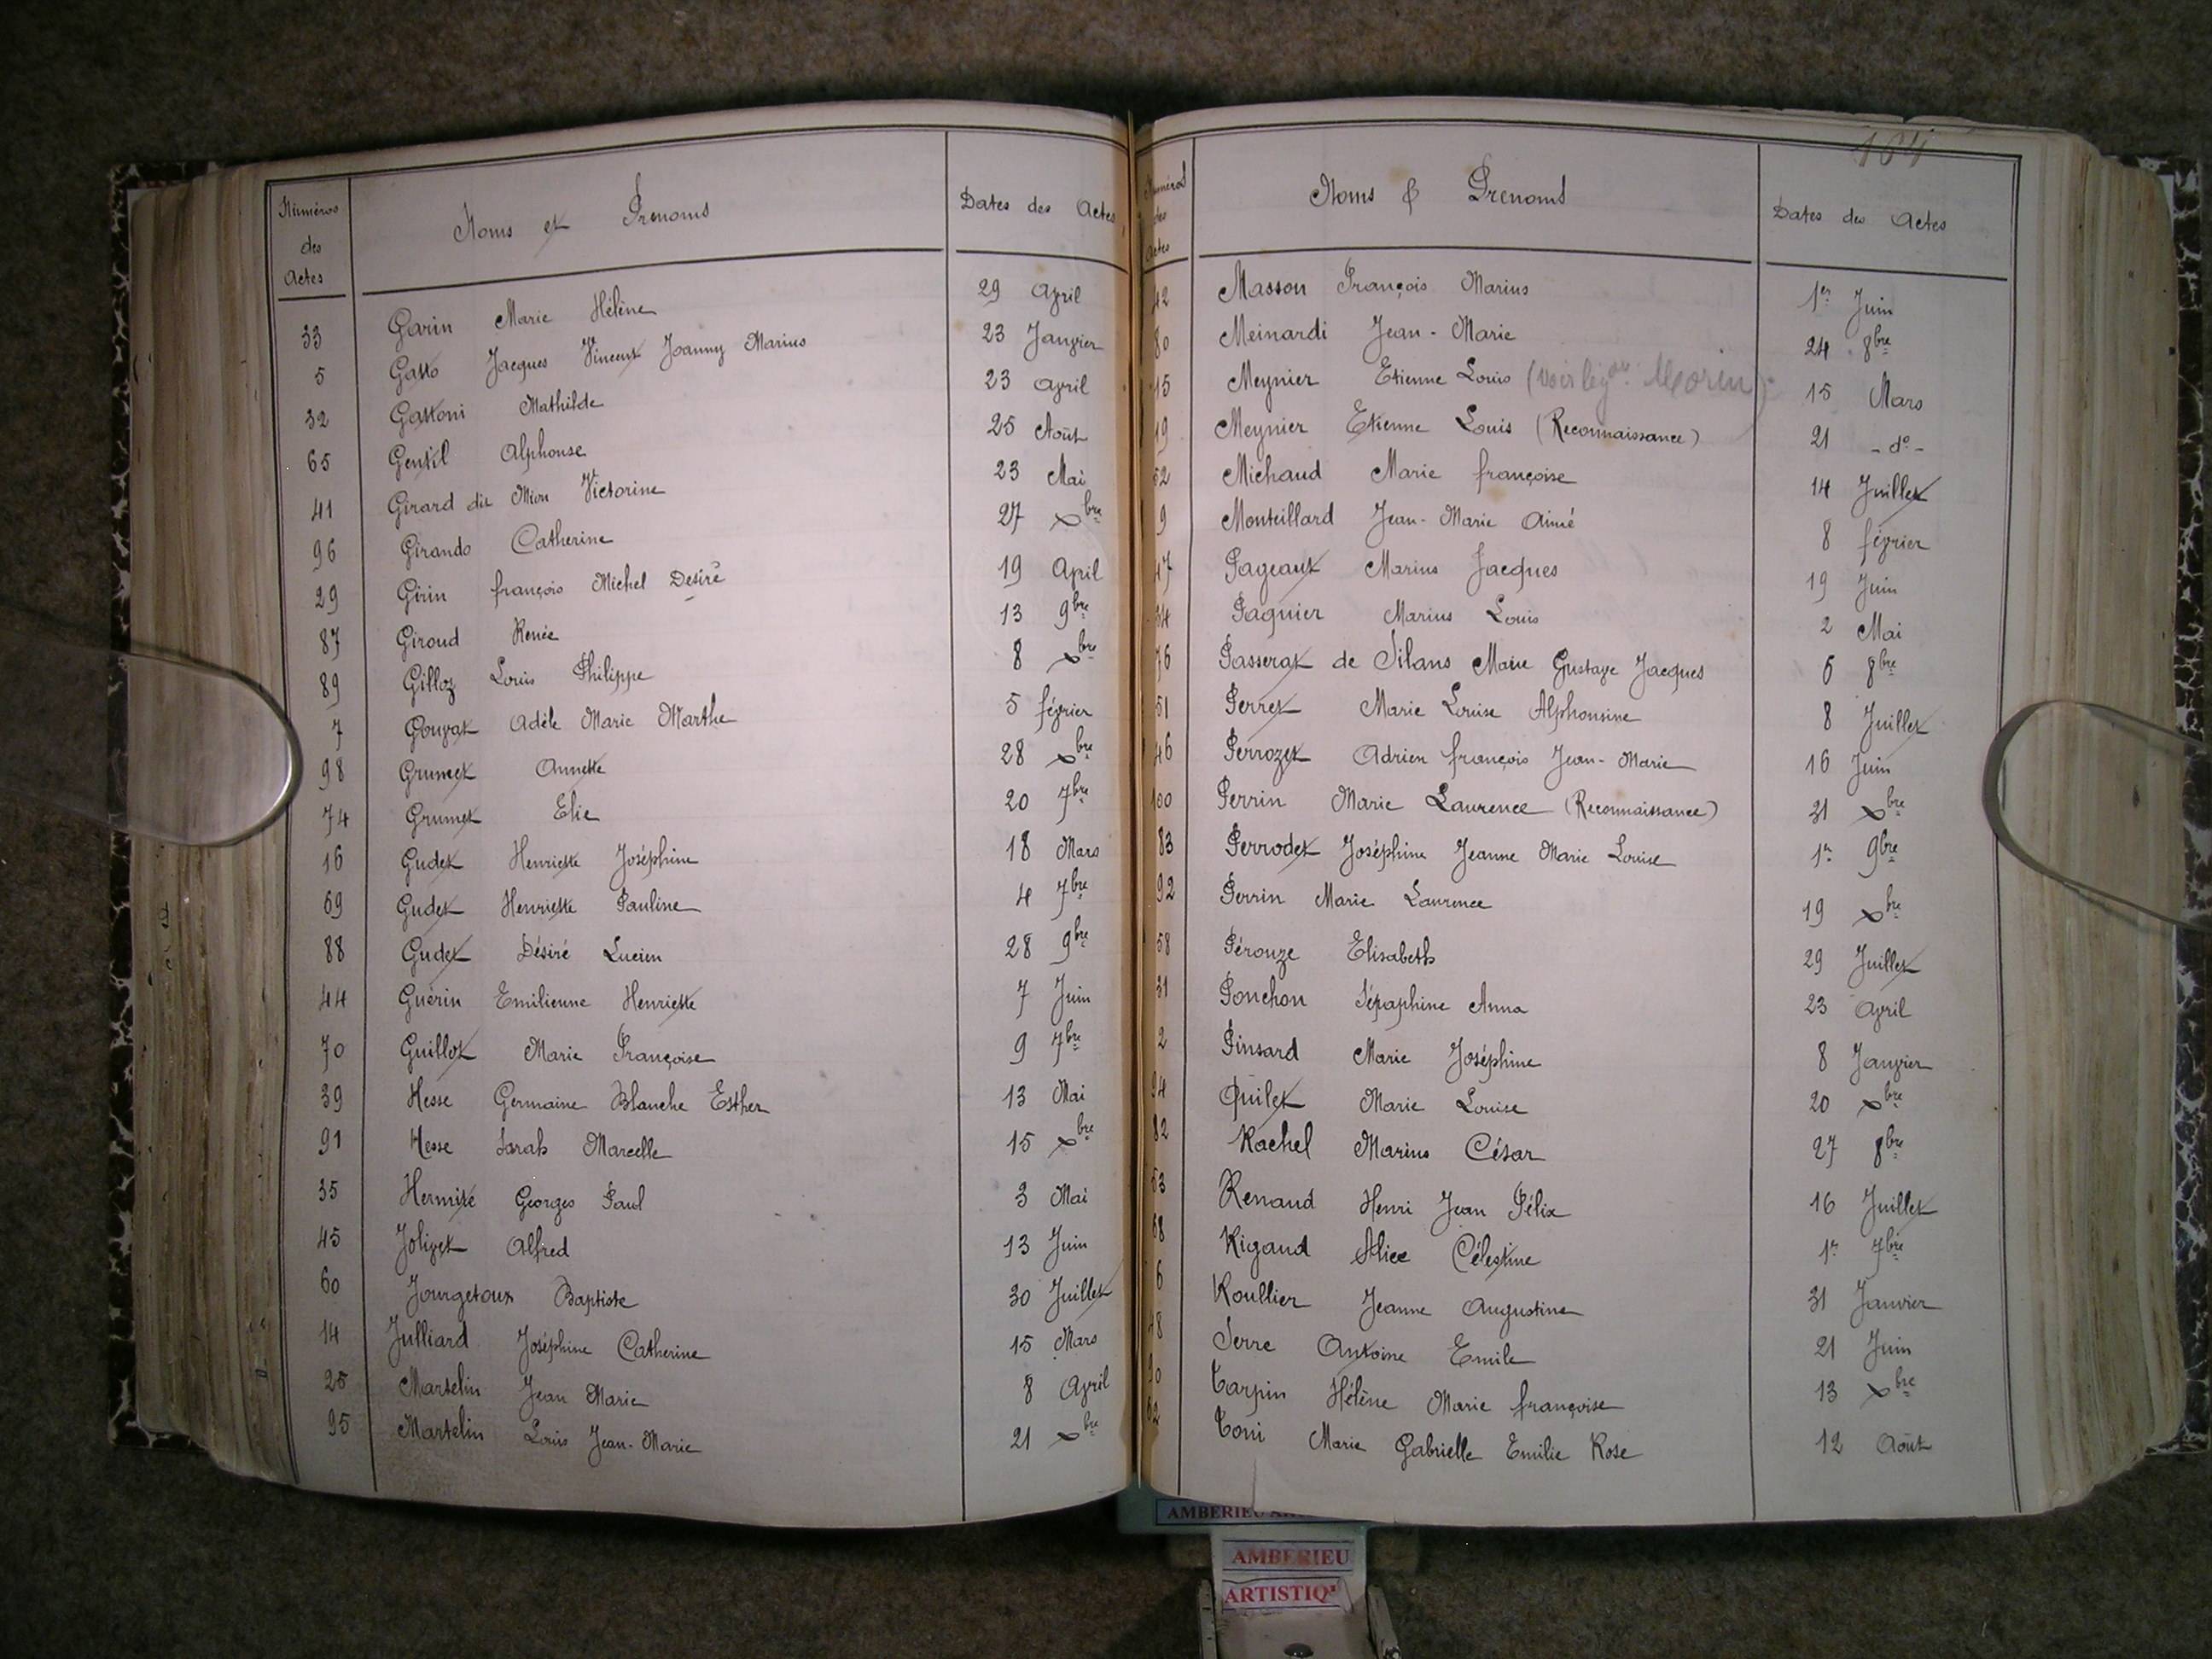 Numéros des Actes Noms et Prénoms Dates des Actes
33 Garin Marie Hélène 29 Avril
5 Gatto Jacques Vincent Joanny Marius 23 Janvier
32 Gattoni Mathilde 23 Avril
65 Gentil Alphonse 25 Août
41 Girard dit Mion Victorine 23 Mai
96 Girando Catherine 27 Xbre
29 Girin françois Michel Desiré 19 Avril
87 Giroud Renée 13 9bre
89 Gilloz Louis Philippe 8 Xbre
7 Gouvat Adèle Marie Marthe 5 février
98 Grumet Annette 28 Xbre
74 Grumet Elie 20 7bre
16 Gudet Henriette Joséphine 18 Mars
69 Gudet Henriette Pauline 4 7bre
88 Gudet Désiré Lucien 28 9bre
44 Guérin Emilienne Henriette 7 Juin
70 Guillot Marie Françoise 9 7bre
39 Hesse Germaine Blanche Esther 13 Mai
91 Hesse Sarah Marcelle 15 Xbre
35 Hermite Georges Paul 3 Mai
45 Jolivet Alfred 13 Juin
60 Jourgetoux Baptiste 30 Juillet
14 Julliard Joséphine Catherine 15 Mars
25 Martelin Jean Marie 8 Avril
95 Martelin Louis Jean-Marie 21 Xbre
104
Numéros des Actes Noms & Prenoms Dates des Actes
42 Masson François Marius 1er Juin
80 Meinardi Jean-Marie 24 8bre
15 Meynier Etienne Louis (voir légon Morin) 15 Mars
19 Meynier Etienne Louis (Reconnaissance) 21 -do-
52 Michaud Marie françoise 14 Juillet
9 Monteillard Jean-Marie Aimé 8 février
47 Pageaut Marius Jacques 19 Juin
34 Pagnier Marius Louis 2 Mai
76 Passerat de Silans Marie Gustave Jacques 6 8bre
51 Perret Marie Louise Alphonsine 8 Juillet
46 Perrozet Adrien françois Jean-Marie 16 Juin
100 Perrin Marie Laurence (Reconnaissance) 31 Xbre
83 Perrodet Joséphine Jeanne Marie Louise 1er 9bre
92 Perrin Marie Laurence 19 Xbre
58 Pérouze Elisabeth 29 Juillet
31 Ponchon Séraphine Anna 23 Avril
2 Pinsard Marie Joséphine 8 Janvier
94 Quilet Marie Louise 20 Xbre
82 Rachel Marius César 27 8bre
53 Renaud Henri Jean Félix 16 Juillet
68 Rigaud Alice Célestine 1er 7bre
6 Roullier Jeanne Augustine 31 Janvier
48 Serre Antoine Emile 21 Juin
90 Tarpin Hélène Marie françoise 13 Xbre
62 Toni Marie Gabrielle Emilie Rose 12 Août
AMBERIEU
AMBERIEU
ARTISTIQ